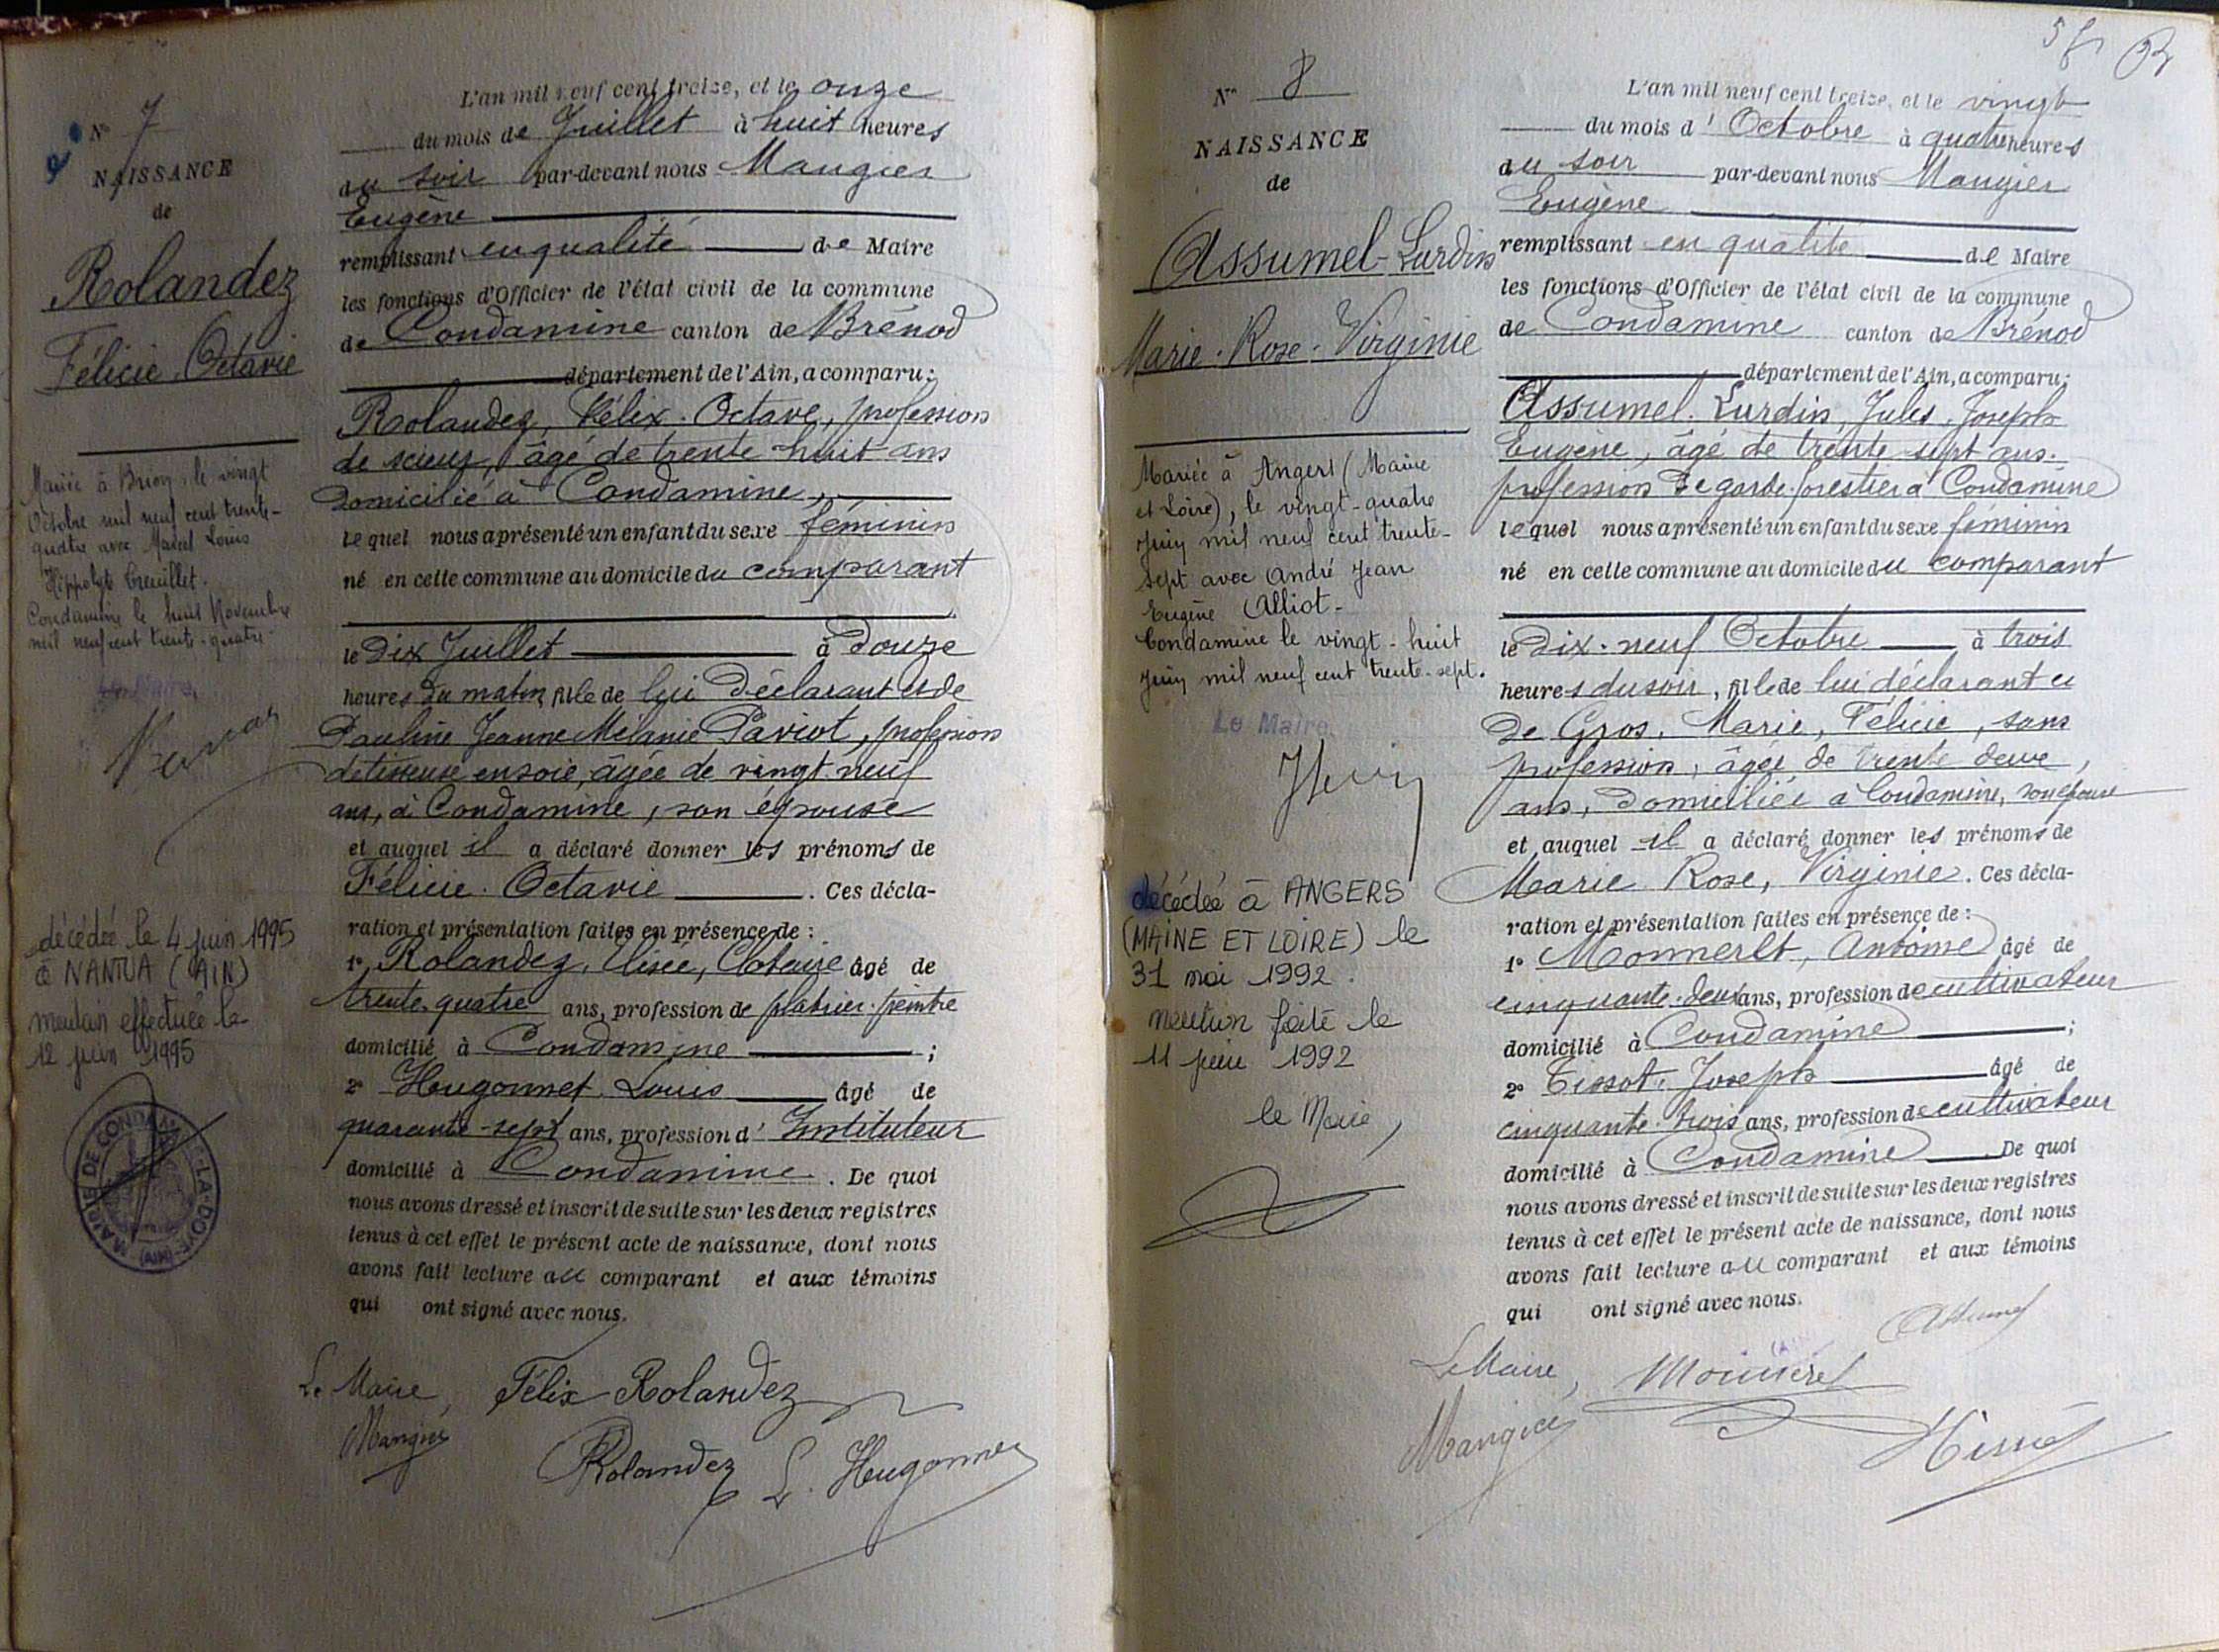 N° 7
NAISSANCE
de
Rolandez
Félicie Octavie
Mariée à Brion, le vingt
Octobre mil neuf cent trente-
quatre avec Marcel Louis
Hippolyte Creuillet.
Condamine le huit Novembre
mil neuf cent trente-quatre
Le Maire,
décédée le 4 juin 1995
à NANTUA (AIN)
mention effectuée le
12 juin 1995
MAIRIE DE CONDAMINE-LA-DOYE
(AIN)
L'an mil neuf cent treize, et le onze
du mois de Juillet à huit heures
du soir par-devant nous Maugier
Eugène
remplissant en qualité de Maire
les fonctions d'Officier de l'état civil de la commune
de Condamine canton de Brénod
département de l'Ain, a comparu:
Rolandez, Félix. Octave, profession
de scieur, âgé de trente huit ans
domicilié à Condamine,
lequel nous a présenté un enfant du sexe féminin
né en cette commune au domicile du comparant
le Dix Juillet à Douze
heures du matin, fille de lui Déclarant et de
Pauline Jeanne Mélanie Paviot, profession
de tisseuse en soie, âgée de vingt neuf
ans, à Condamine, son épouse
et auquel il a déclaré donner les prénoms de
Félicie. Octavie. Ces décla-
ration et présentation faites en présence de :
1° Rolandez, Elisée, Clotaire âgé de
trente-quatre ans, profession de platrier-peintre
domicilié à Condamine ;
2° Hugonnet Louis âgé de
quarante-sept ans, profession d'Instituteur
domicilié à Condamine. De quoi
nous avons dressé et inscrit de suite sur les deux registres
tenus à cet effet le présent acte de naissance, dont nous
avons fait lecture au comparant et aux témoins
qui ont signé avec nous.
Le Maire, Félix Rolandez
Maugier
Rolandez L. Hugonnet
N° 8
NAISSANCE
de
Assumel-Lurdin
Marie. Rose. Virginie
Mariée à Angers (Maine
et Loire), le vingt-quatre
Juin mil neuf cent trente-
sept avec André Jean
Eugène Alliot.
Condamine le vingt-huit
Juin mil neuf cent trente-sept.
Le Maire
décédée à ANGERS
(MAINE ET LOIRE) le
31 mai 1992.
mention faite le
11 juin 1992
le Maire,
L'an mil neuf cent treize, et le vingt
du mois d'Octobre à quatre heures
du soir par-devant nous Maugier
Eugène
remplissant en qualité de Maire
les fonctions d'Officier de l'état civil de la commune
de Condamine canton de Brénod
département de l'Ain, a comparu:
Assumel. Lurdin, Jules, Joseph
Eugène, âgé de trente sept ans.
profession de garde-forestier à Condamine
lequel nous a présenté un enfant du sexe féminin
né en cette commune au domicile du comparant
le Dix-neuf Octobre à trois
heures du soir, fille de lui déclarant et
De Gros, Marie, Félicie, sans
profession, âgée de trente deux,
ans, domiciliée à Condamine, son épouse
et auquel il a déclaré donner les prénoms de
Marie Rose, Virginie. Ces décla-
ration et présentation faites en présence de :
1° Monneret, Antoine âgé de
cinquante-deux ans, profession de cultivateur
domicilié à Condamine ;
2° Tissot, Joseph âgé de
cinquante-trois ans, profession de cultivateur
domicilié à Condamine. De quoi
nous avons dressé et inscrit de suite sur les deux registres
tenus à cet effet le présent acte de naissance, dont nous
avons fait lecture au comparant et aux témoins
qui ont signé avec nous.
Assumel
Le Maire, Monneret
Maugier